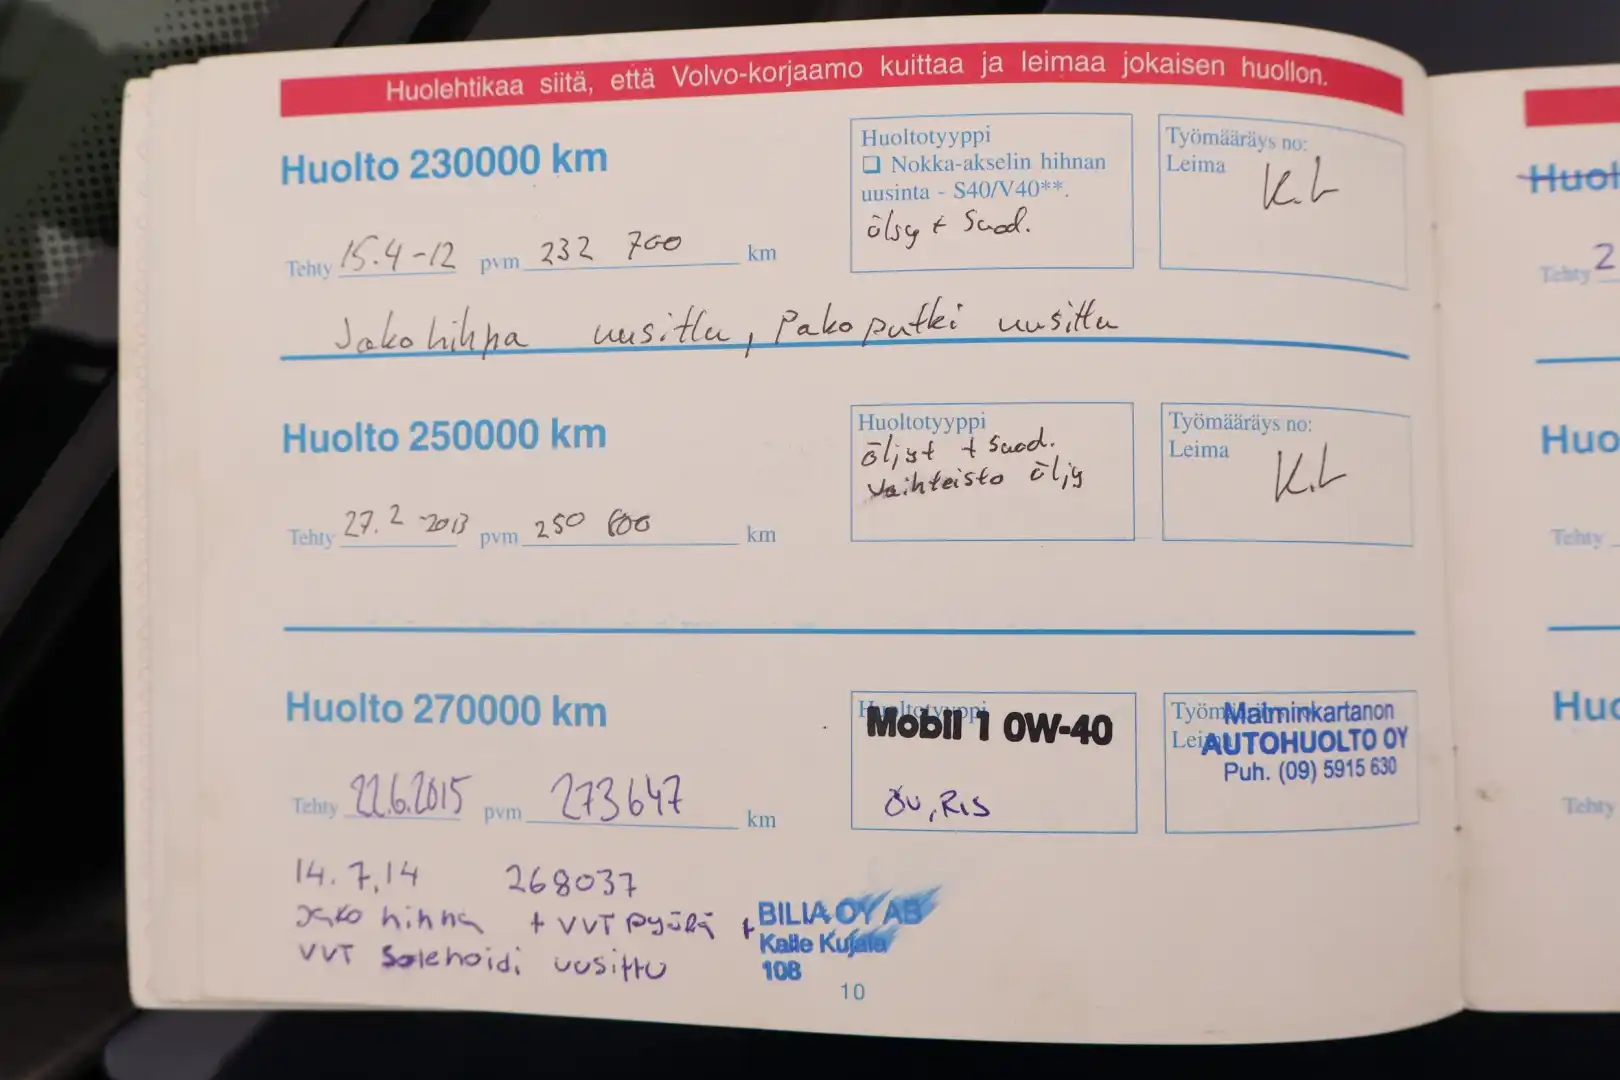 Huolehtikaa siitä, että Volvo-korjaamo kuittaa ja leimaa jokaisen huollon.
Huolto 230000 km
Huoltotyyppi
❏ Nokka-akselin hihnan
uusinta - S40/V40**.
öljy + Suod.
Työmääräys no:
Leima
K.L
Tehty 15.4-12 pvm 232 700 km
Jakohihna uusittu, Pakoputki uusittu
Huolto 250000 km
Huoltotyyppi
öljyt + Suod.
Vaihteisto öljy
Työmääräys no:
Leima
K.L
Tehty 27.2-2013 pvm 250 600 km
Huolto 270000 km
Huoltotyyppi
Mobil 1 0W-40
öv, RIS
Malminkartanon
AUTOHUOLTO OY
Puh. (09) 5915 630
Tehty 22.6.2015 pvm 273647 km
14.7.14 268037
Jako hihna + VVT pyörä +
VVT Solenoidi uusittu
BILIA OY AB
Kalle Kujala
108
10
Tehty 2
Tehty
Tehty